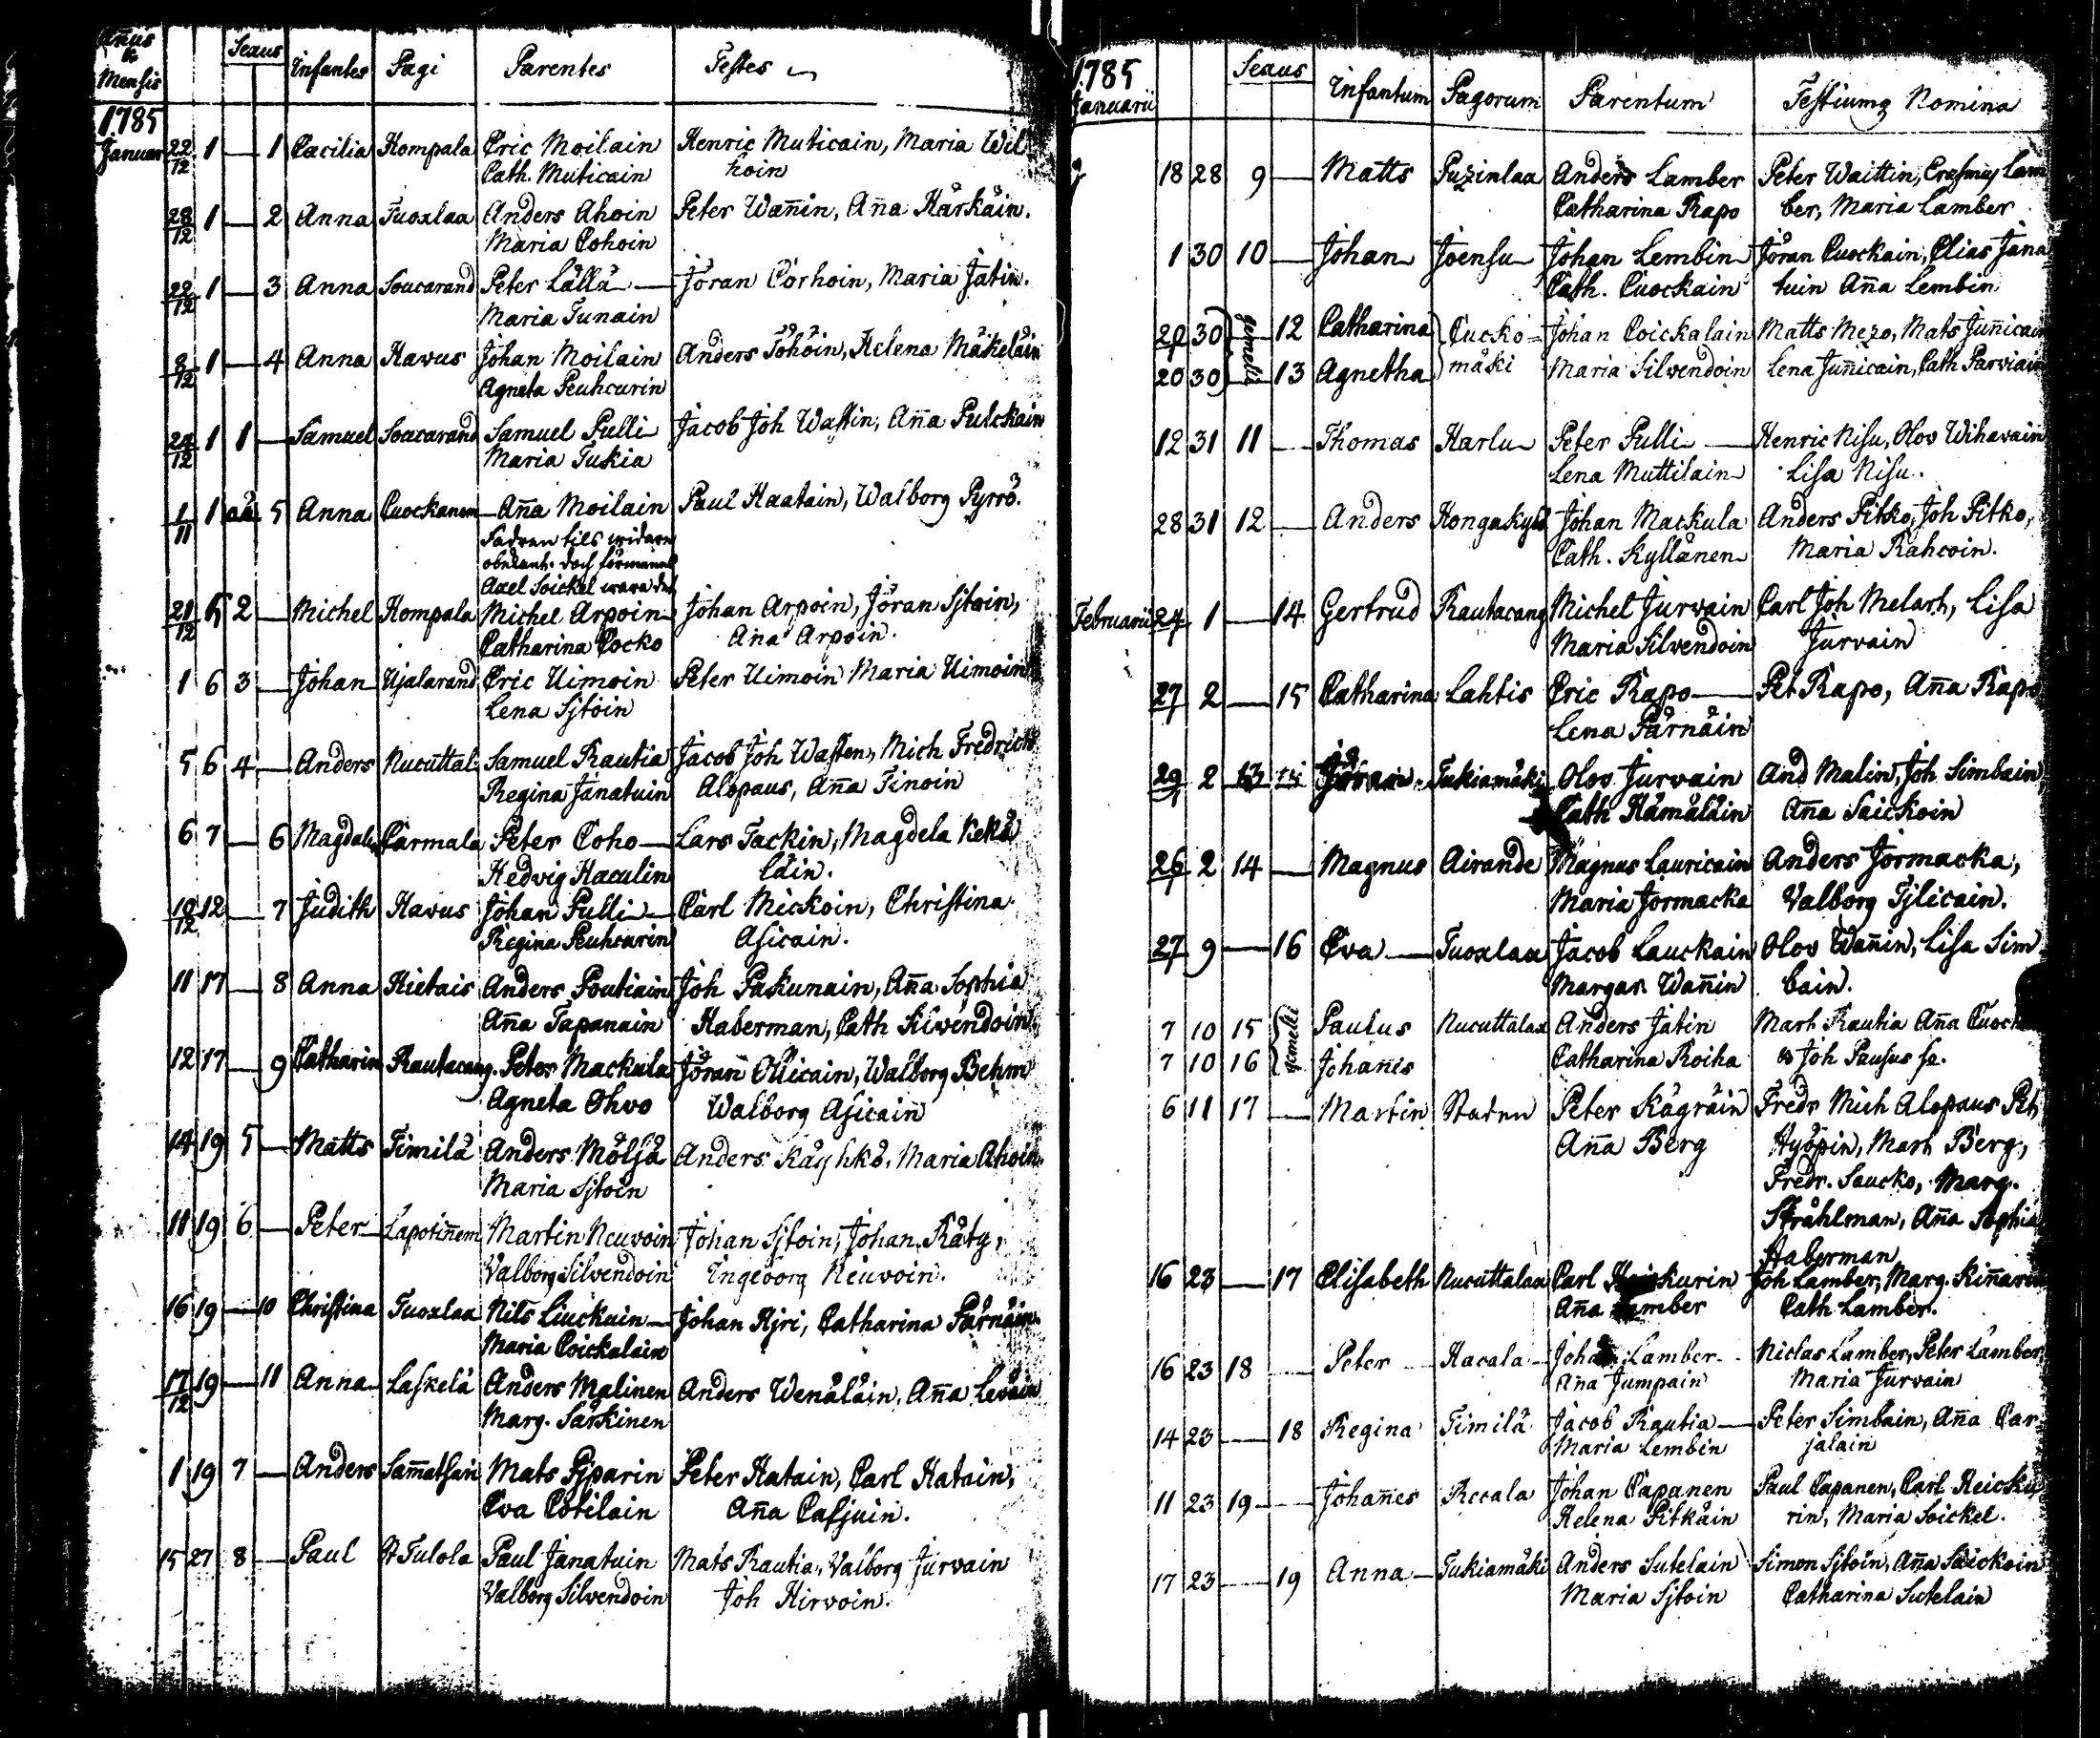 Añus & Mensis Sexus Infantes Pagi Parentes Testes
1785
Januar 22/12 1 — 1 Cæcilia Kompala Eric Moilain Henric Muticain, Maria Wil
Cath. Muticain hoin
28/12 1 — 2 Anna Tuoxlax Anders Ahoin Peter Wañin, Aña Härkäin.
Maria Cohoin
22/12 1 — 3 Anna Soucarand Peter Lällä — Jöran Cörhoin, Maria Jätin.
Maria Tunain
8/12 1 — 4 Anna Havus Johan Moilain Anders Töhöin, Helena Mäkeläin
Agneta Peuhcurin
24/12 1 1 — Samuel Soucarand Samuel Pulli Jacob Joh Wattin, Aña Pulckain
Maria Tukia
1/11 1 oä 5 Anna Cuockanem Aña Moilain Paul Haatain, Walborg Pyrrö.
Fadren tils widare
obekant. doch förmenes
Axel Soickel wara det
21/12 5 2 — Michel Kompala Michel Arpoin Johan Arpoin, Jöran Sjtoin,
Catharina Cocko Aña Arpoin.
1 6 3 — Johan Ujalarand Eric Uimoin Peter Uimoin Maria Uimoin
Lena Sjtoin
5 6 4 — Anders Nucuttal Samuel Rautia Jacob Joh Watten, Mich Fredrich
Regina Janatuin Alopaus, Aña Tinoin
6 7 — 6 Magdale Carmala Peter Coho — Lars Tackin, Magdela Kekä
Hedvig Haculin läin.
10/12 12 — 7 Judith Havus Johan Pulli — Carl Mickoin, Christina
Regina Peuhcurin Asicain.
11 17 — 8 Anna Hietais Anders Poutiain Joh Pakunain, Aña Sophia
Aña Tapanain Haberman, Cath Silvendoin
12 17 — 9 Catharin Rautacang. Peter Mackula Jöran Ollicain, Walborg Behm
Agneta Ohvo Walborg Asicain
14 19 5 — Matts Timilä Anders Möljä Anders Käyhkö, Maria Ahoin
Maria Sjtoin
11 19 6 — Peter — Lapotiñem Martin Neuvoin Johan Sjtoin, Johan Räty,
Valborg Silvendoin Ingeborg Neuvoin.
16 19 — 10 Christina Tuoxlax Nils Liuckuin — Johan Hjri, Catharina Pärnäin
Maria Coickalain
17/12 19 — 11 Anna Laskelä Anders Malinen Anders Wenäläin, Aña Leväin
Marg. Särkinen
1 19 7 — Anders Sam̄atsari Mats Pjparin Peter Hatain, Carl Hatain,
Eva Cotilain Aña Casjuin.
15 27 8 — Paul St Tulola Paul Janatuin Mats Rautia, Valborg Jurvain
Valborg Silvendoin Joh Hirvoin.
1785 Januarii Sexus Infantum Pagorum Parentum Testiumq Nomina
18 28 9 — Matts Puzinlax Anders Lamber Peter Waittin, Erasmus Lam
Catharina Rapo ber, Maria Lamber
1 30 10 — Johan Joensu Johan Lembin Jöran Cuockain, Elias Jana
Cath. Cuockain tuin Aña Lembin
29 30 gemelli — 12 Catharina Cucko= Johan Coickalain Matts Mezo, Mats Juñicain
20 30 — 13 Agnetha mäki Maria Silvendoin Lena Juñicain, Cath Parviain
12 31 11 — Thomas Harlu Peter Pulli — Henric Nisu, Olov Wihavain
Lena Muttilain Lisa Nisu.
28 31 12 — Anders Hongakylä Johan Mackula Anders Pitko, Joh Pitko,
Cath. Kyllänen Maria Rahcoin.
Februarii 24 1 — 14 Gertrud Rautacang Michel Jurvain Carl Joh Melart, Lisa
Maria Silvendoin Jurvain
27 2 — 15 Catharina Lahtis Eric Rapo — Pet Rapo, Aña Rapo
Lena Pärnäin
29 2 13 Jöran Tukiamäki Olov Jurvain And Malin, Joh Simbain,
Cath Hämäläin Aña Saickoin
26 2 14 — Magnus Airande Magnus Lauricain Anders Jormacka,
Maria Jormacka Valborg Tjlicain.
27 9 — 16 Eva — Tuoxlax Jacob Lauckain Olov Wañin, Lisa Sim
Margar. Wañin bain.
7 10 15 gemelli Paulus Nucuttalax Anders Jätin Mart Rautia Aña Cuock
7 10 16 Johañes Catharina Roiha & Joh Pausus
6 11 17 — Martin Staden Peter Kägräin Fredr Mich Alopaus Pet
Aña Berg Hyöpin, Mart Berg,
Fredr. Saucko, Marg.
Stråhlman, Aña Sophia
Haberman
16 23 — 17 Elisabeth Nucuttalax Carl Heickurin Joh Lamber, Marg. Kiñarin
Aña Lamber Cath Lamber.
16 23 18 — Peter Hacala Johan Lamber Niclas Lamber, Peter Lamber
Aña Jumpain Maria Jurvain
14 23 — 18 Regina Timilä Jacob Rautia — Peter Simbain, Aña Car
Maria Lembin jalain
11 23 19 — Johañes Recala Johan Capanen Paul Capanen, Carl Heicku
Helena Pitkäin rin, Maria Soickel.
17 23 — 19 Anna Tukiamäki Anders Sutelain Simon Sjtoin, Aña Saickoin
Maria Sjtoin Catharina Sutelain